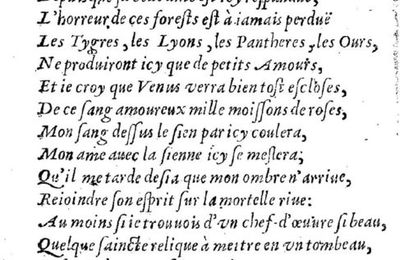 L'horreur de ces forests est à iamais perduë
Les Tygres, les Lyons, les Pantheres, les Ours,
Ne produiront icy que de petits Amours,
Et ie croy que Venus verra bien tost escloses,
De ce sang amoureux mille moissons de roses,
Mon sang dessus le sien par icy coulera,
Mon ame auec la sienne icy se meslera;
Qu'il me tarde desia que mon ombre n'arriue,
Reioindre son esprit sur la mortelle riue:
Au moins si ie trouuois d'vn chef-d'œuure si beau,
Quelque saincte relique à mettre en vn tombeau,